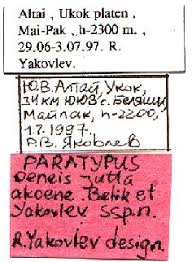 Altai , Ukok platen ,
Mai-Pak , h-2300 m. ,
29.06-3.07.97. R.
Yakovlev.
Ю.В. Алтай, Укок,
34 км ЮЮЗ с. Беляши
Майпак, h-2200,
1.7.1997.
Р.В. Яковлев
PARATYPUS
Oeneis jutta
akoene Belik et
Yakovlev ssp.n.
R.Yakovlev design.